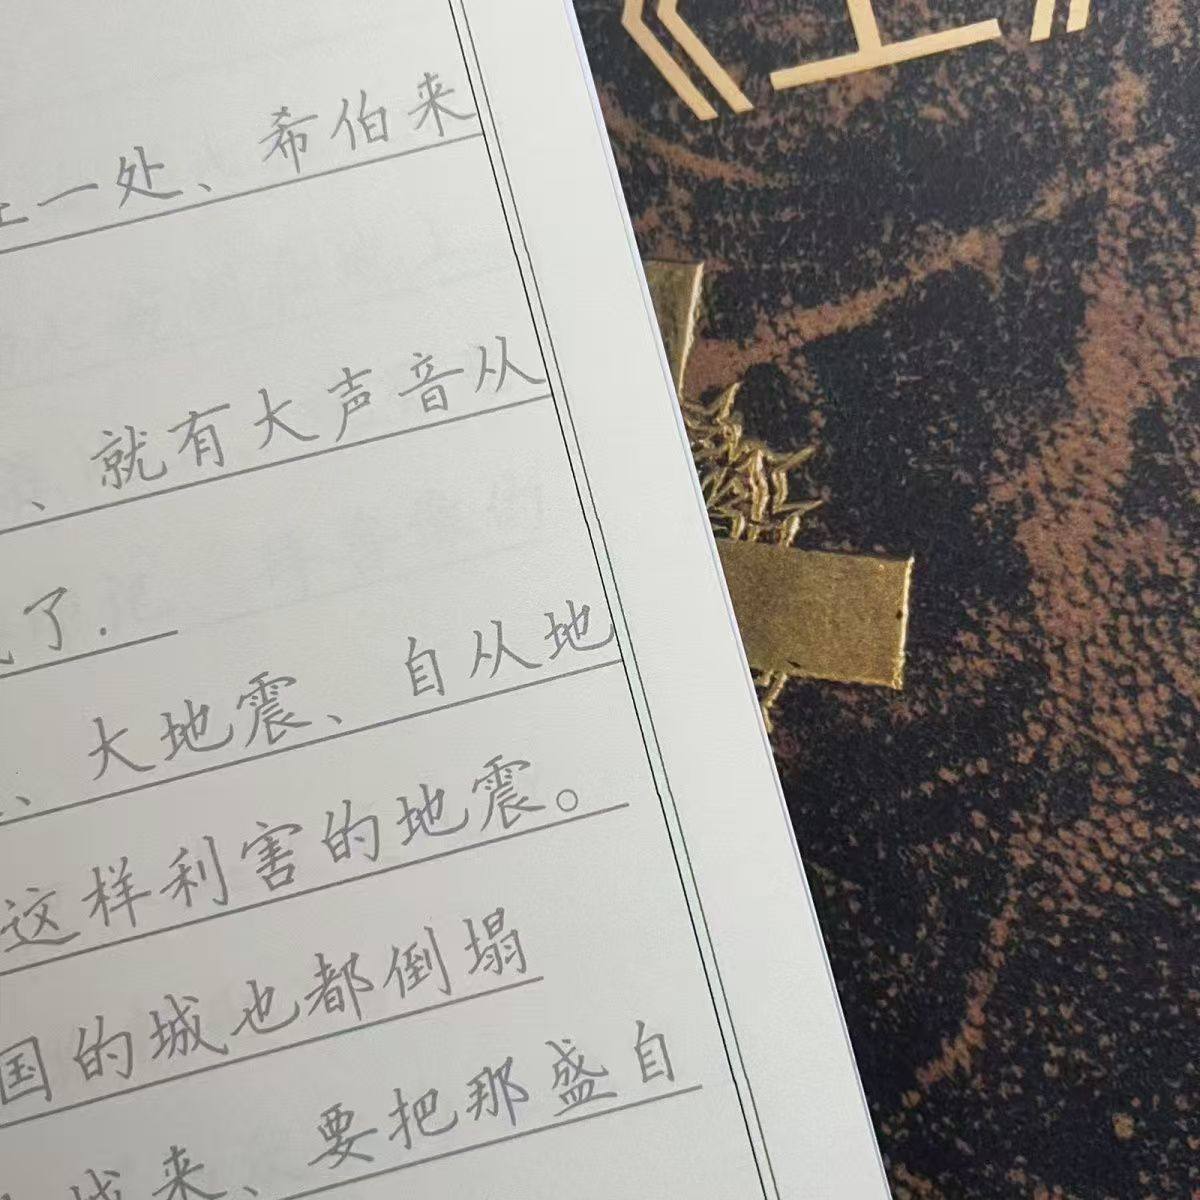 《工》
一处、希伯来
、就有大声音从
了.
、大地震、自从地
这样利害的地震。
国的城也都倒塌
来、要把那盛自